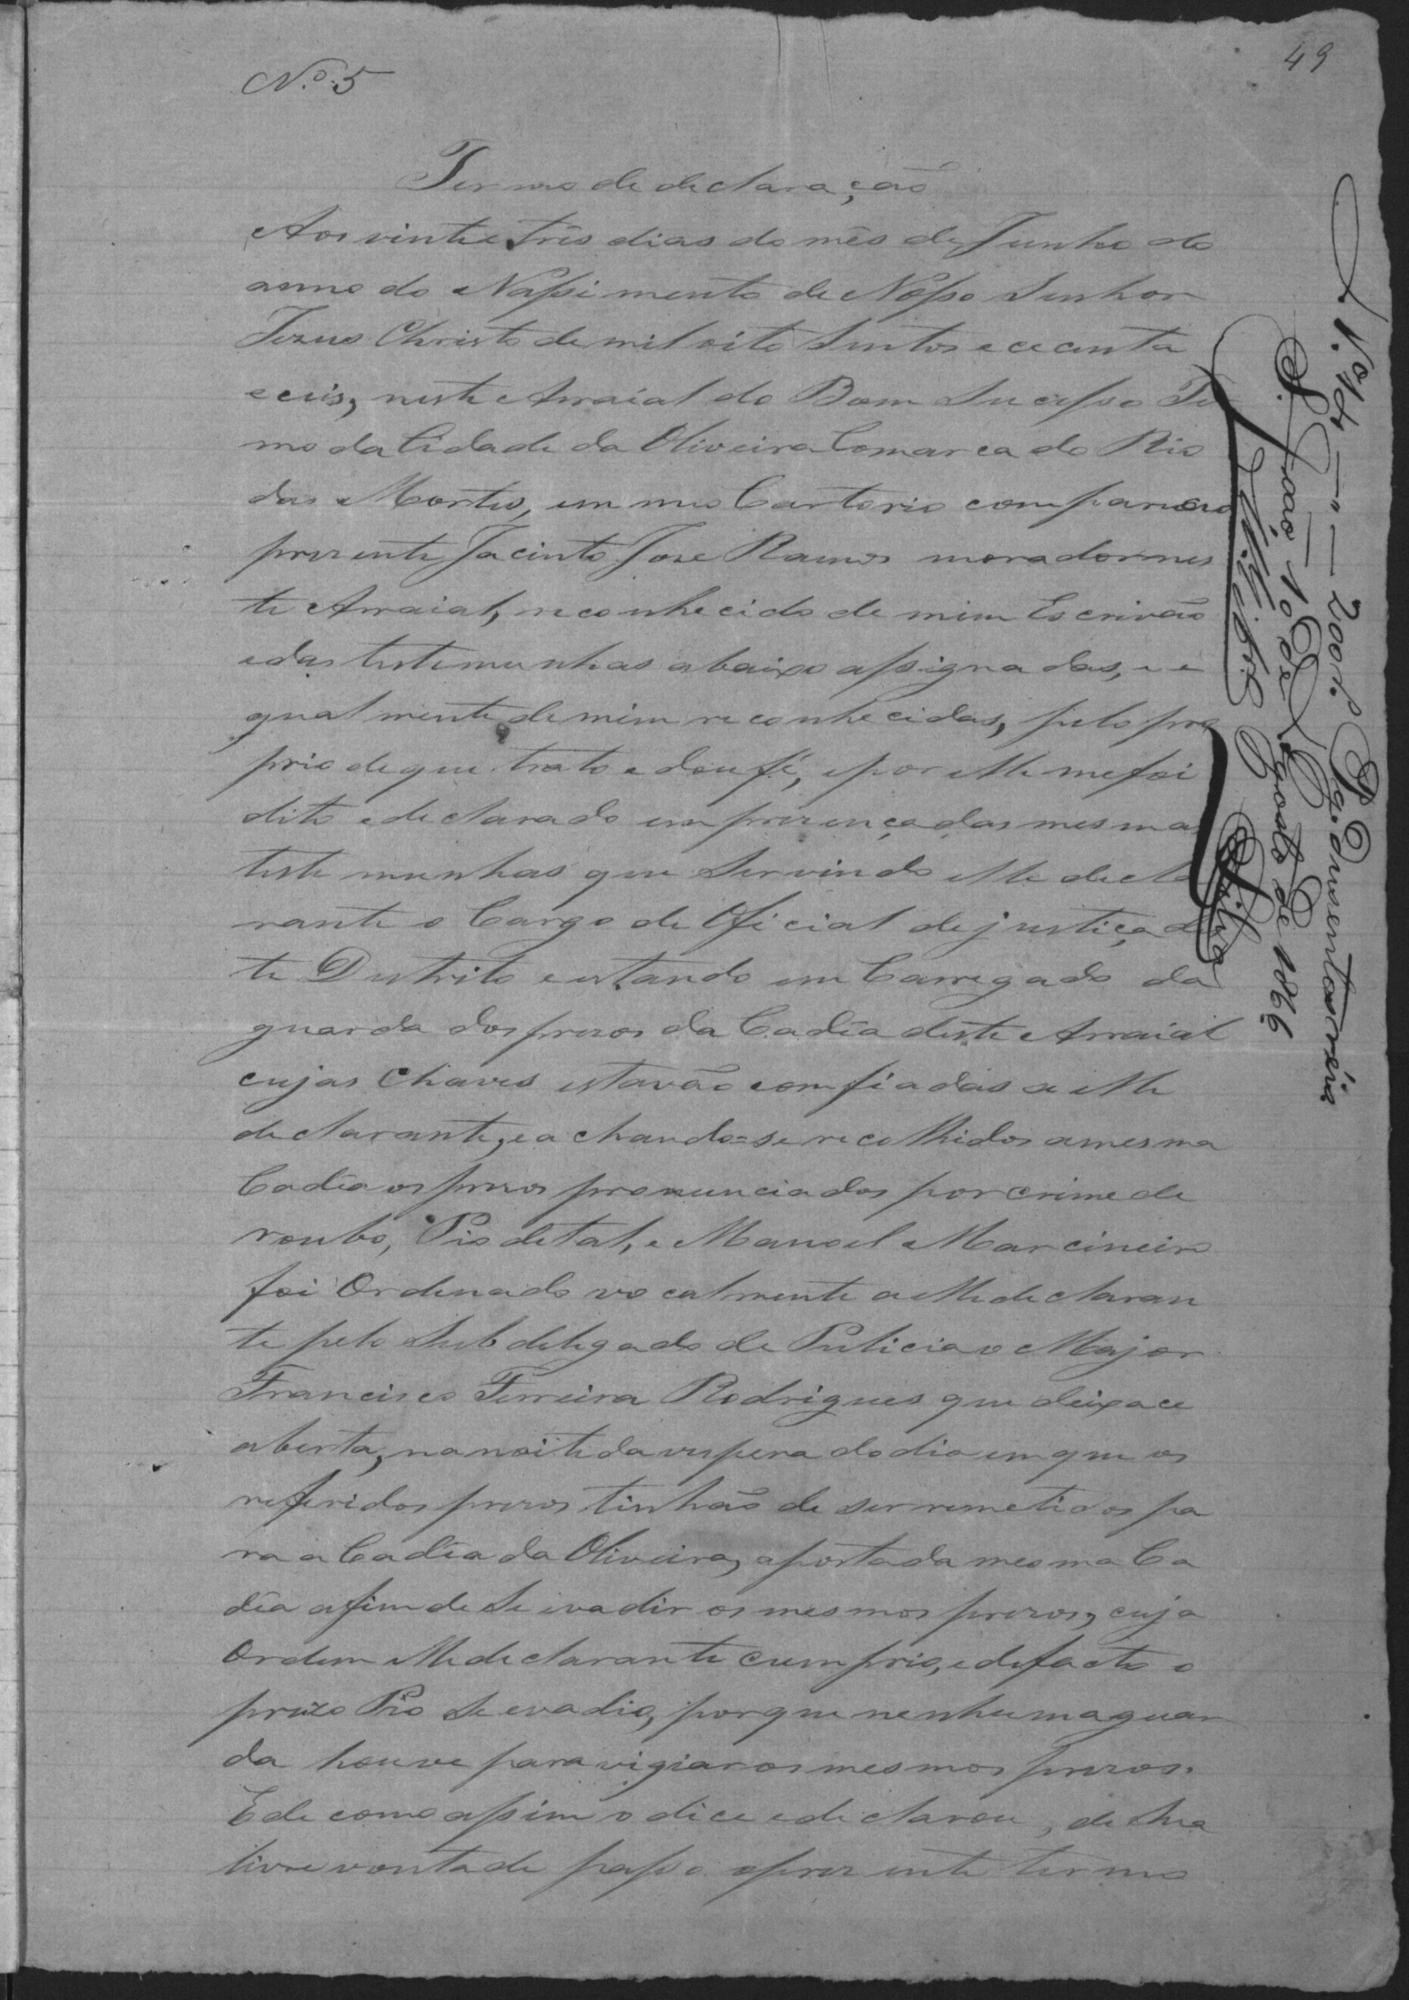 49
N.º 5
Termo de declaração
Aos vinte e três dias do mês de Junho do
anno do Nassimento de Nosso Senhor
Jezus Christo de mil oito Sentos e cecenta
e ceis, neste Arraial do Bom Sucesso Ter
mo da Cidade da Oliveira Comarca do Rio
das Mortes, em meu Cartorio compareceo
prezente Jacinto Jose Ramos morador nes
te Arraial, reconhecido de mim Escrivão
e das testemunhas abaixo assignadas, e e
gualmente de mim reconhecidas, pelo pro
prio de que trato e dou fé, e por elle me foi
dito e declarado em prezença das mesmas
testemunhas que Servindo elle decla
rante o Cargo de Oficial de justiça des
te Destrito e estando em Carregado da
guarda dos prezos da Cadêa deste Arraial
cujas Chaves estavão comfiadas a elle
declarante, e achando=se recolhidos a mesma
Cadêa os prezos pronunciados por crime de
roubo, Pio de tal, e Manoel Marcineiro
foi Ordenado vocalmente a elle declaran
te pelo Subdelegado de Pulicia o Major
Francisco Ferreira Rodrigues que deixace
aberta, na noite da vespera do dia em que os
referidos prezos tinhão de ser remetidos pa
ra a Cadêa da Oliveira, a porta da mesma Ca
dêa afim de Se evadir os mesmos prezos, cuja
Ordem elle declarante cumprio, e defacto o
prezo Pio Se evadio, porque nenhuma guar
da houve para vigiar os mesmos prezos.
E de como assim o dice e declarou, de Sua
livre vontade passo o prezente termo
N.º 18 — " — 200 r.s Pg. dusentos reis
S. João 10 de Agosto de 1866
Silva